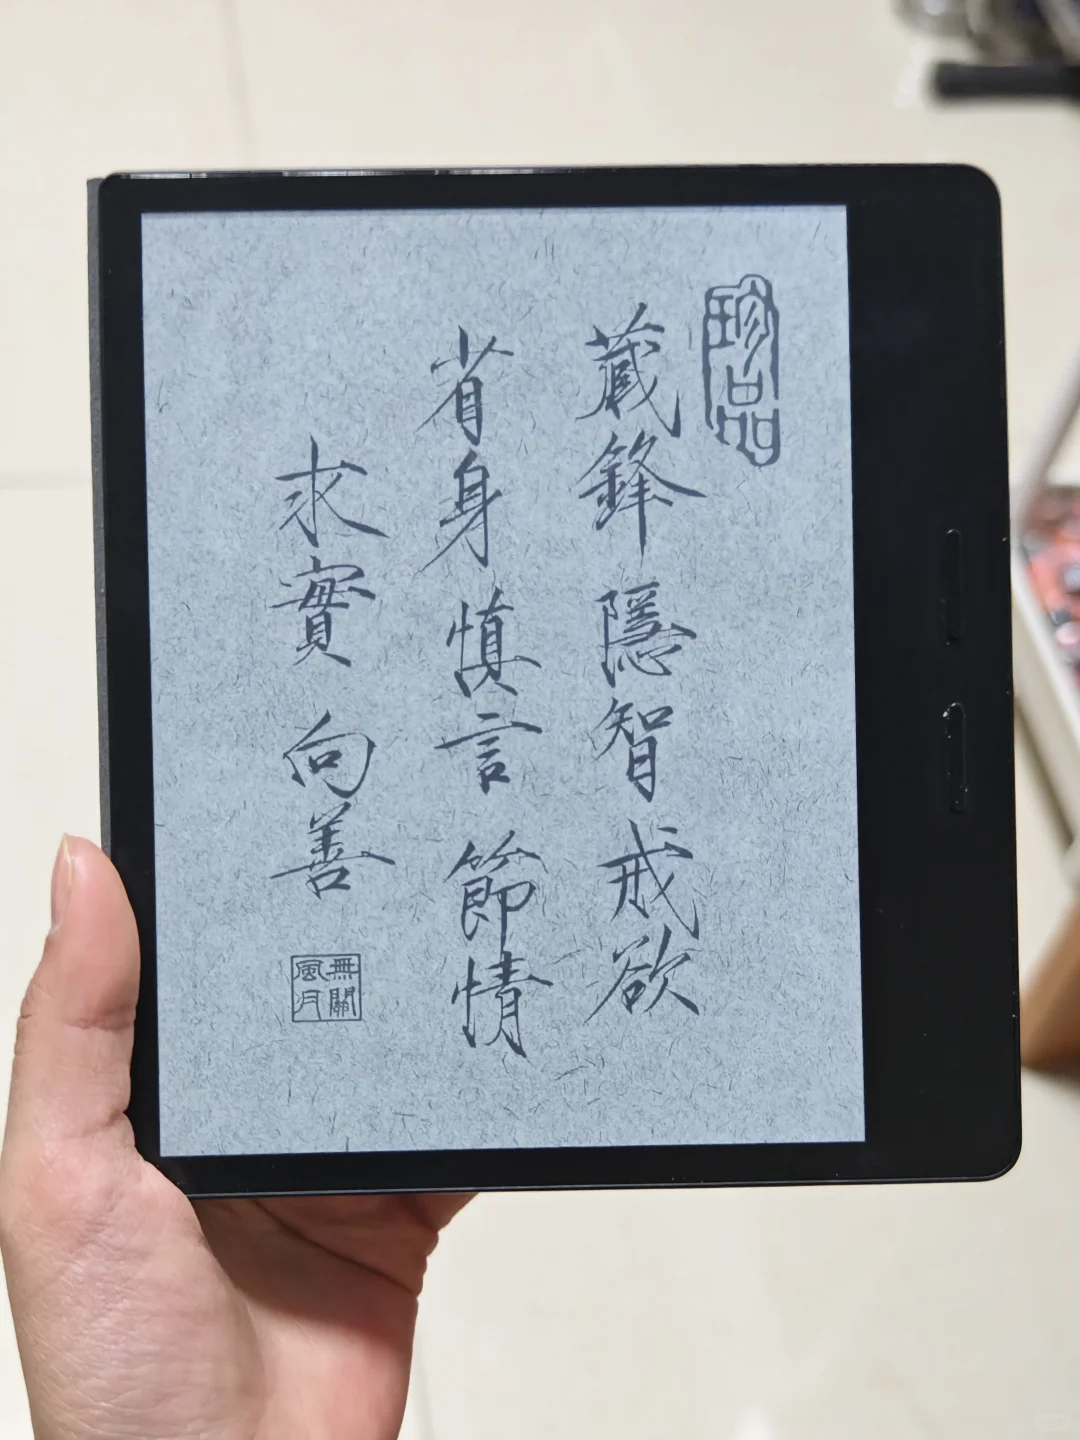 珍品
藏鋒隱智戒欲
省身慎言節情
求實向善
無關風月